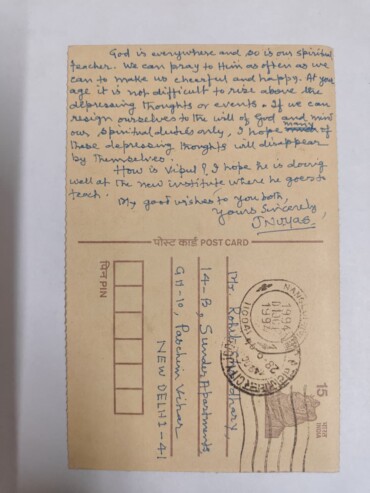 God is everywhere and so is our spiritual
teacher. We can pray to Him as often as we
can to make us cheerful and happy. At your
age it is not difficult to rise above the
depressing thoughts or events. If we can
resign ourselves to the will of God and mind
our spiritual duties only, I hope many of
these depressing thoughts will disappear
by themselves.
How is Vipul? I hope he is doing
well at the new institute where he goes to
teach.
My good wishes to you both,
Yours Sincerely,
पोस्ट कार्ड POST CARD
पिन PIN
Mr. Chaudhary,
14-B, Sunder Apartments
GH-10, Paschim Vihar
NEW DELHI-41
15
भारत
INDIA
1994